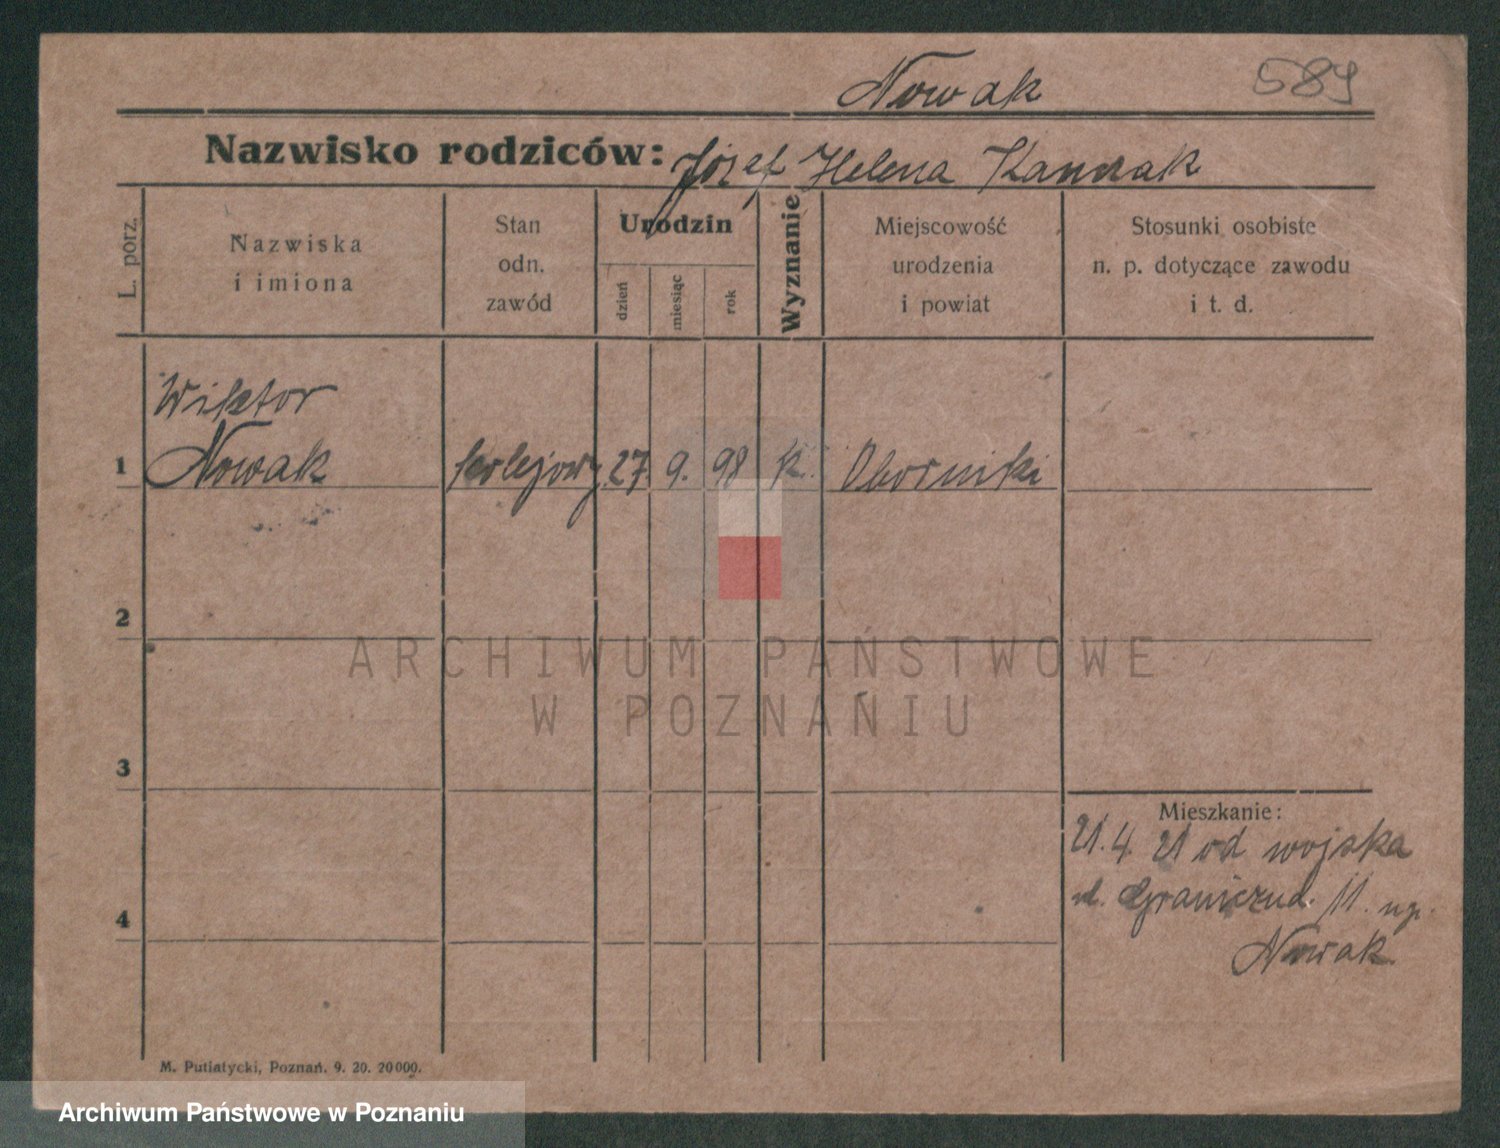 Nowak
589
Nazwisko rodziców: Józef Helena
L. porz.
Nazwiska
i imiona
Stan
odn.
zawód
Urodzin
dzień
miesiąc
rok
Wyznanie
Miejscowość
urodzenia
i powiat
Stosunki osobiste
n. p. dotyczące zawodu
i t. d.
Wiktor
1 Nowak kolejowy 27 9. 98 k. Oborniki
2
3
4
Mieszkanie:
21. 4. 21 od wojska
ul. Graniczna 11.
Nowak
M. Putiatycki, Poznań. 9. 20. 20000.
ARCHIWUM PAŃSTWOWE
W POZNANIU
Archiwum Państwowe w Poznaniu